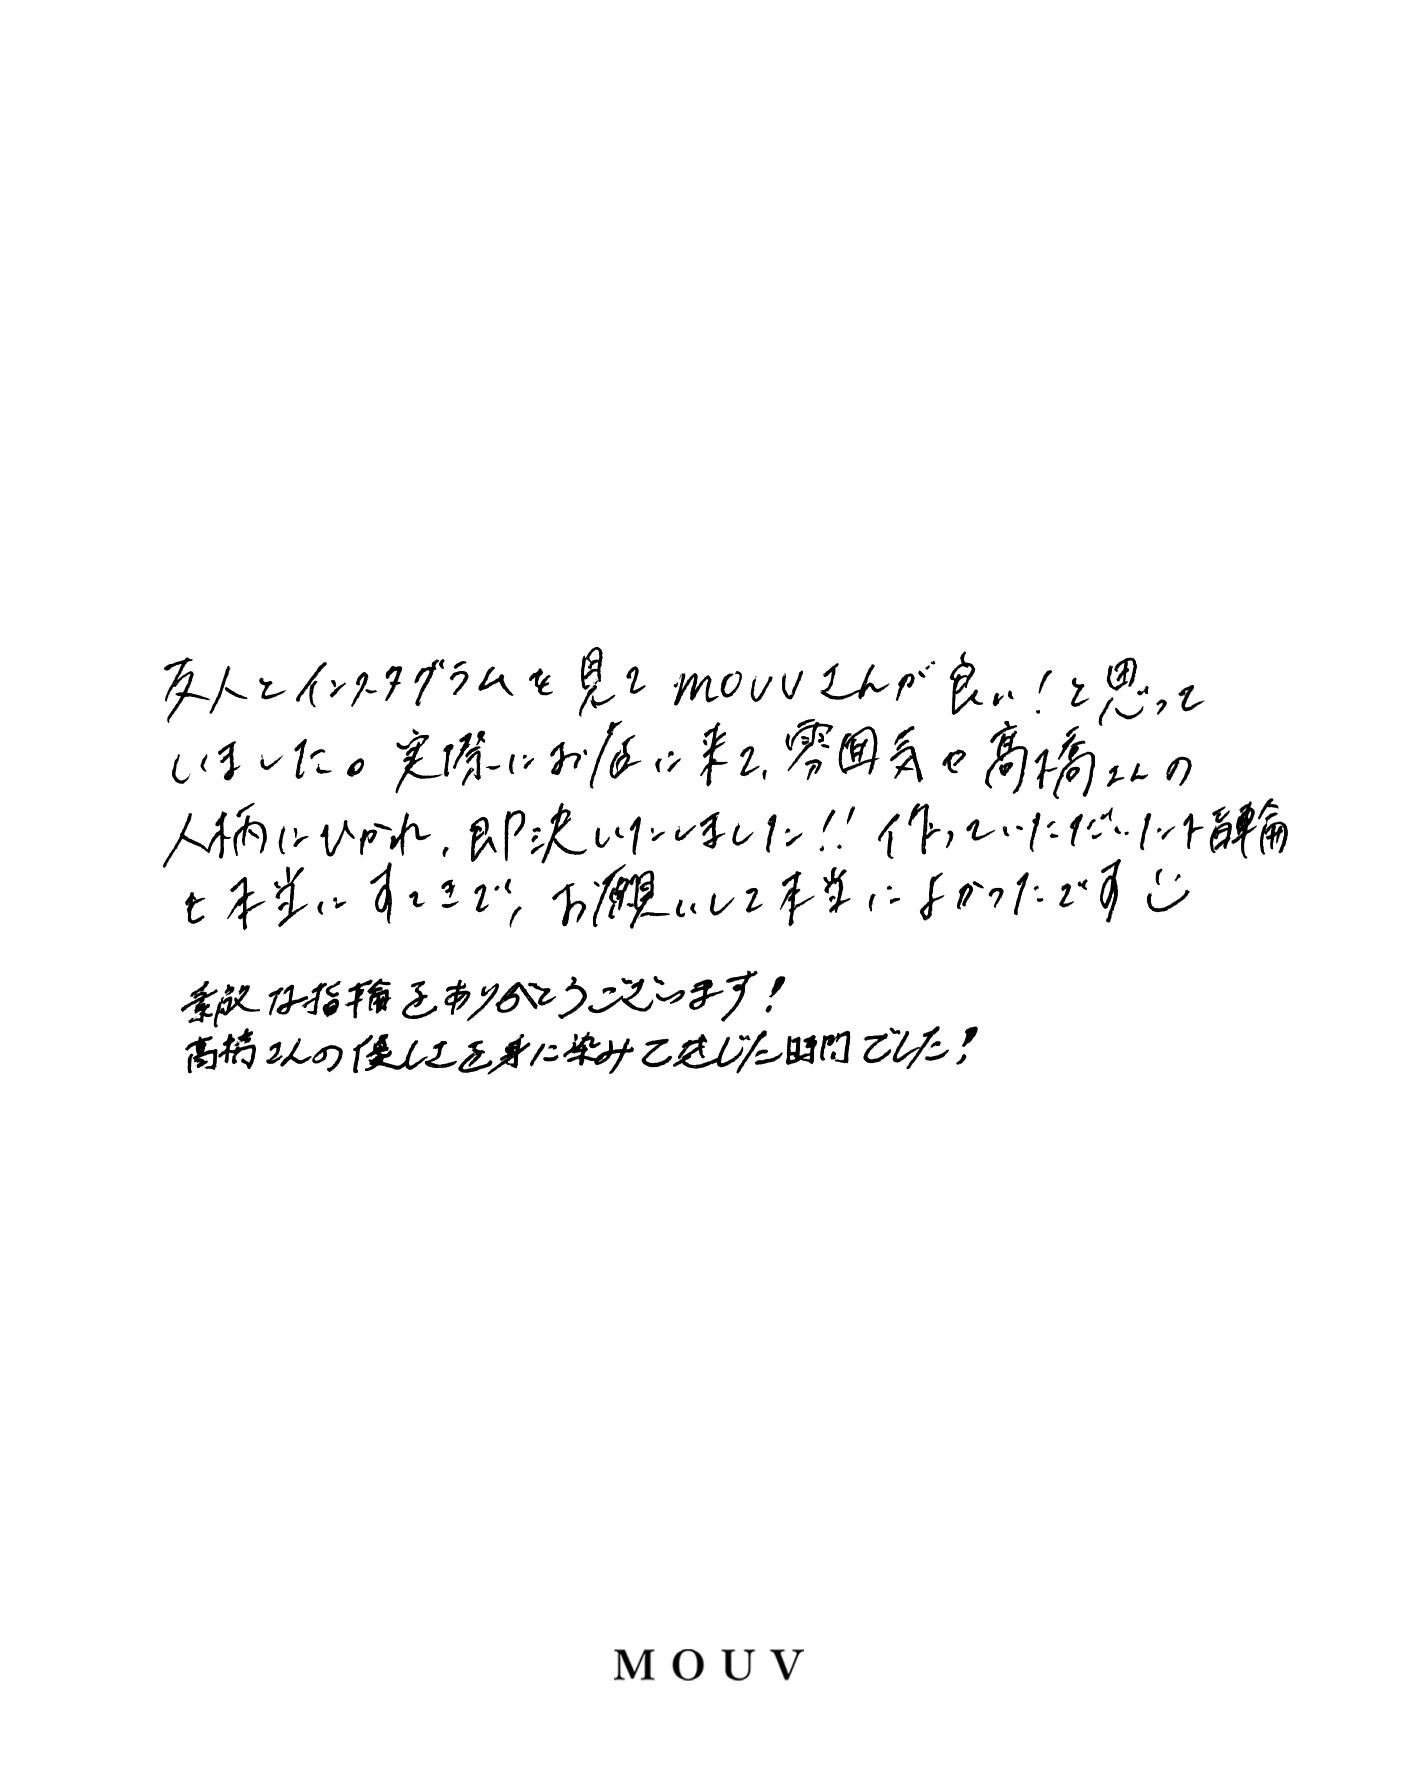 友人とインスタグラムを見てMOUVさんが良い！と思って
いました。実際にお店に来て、雰囲気や高橋さんの
人柄にひかれ、即決いたしました！！作っていただいた指輪
も本当にすてきで、お願いして本当によかったです
素敵な指輪をありがとうございます！
高橋さんの優しさを身に染みて感じた時間でした！
MOUV